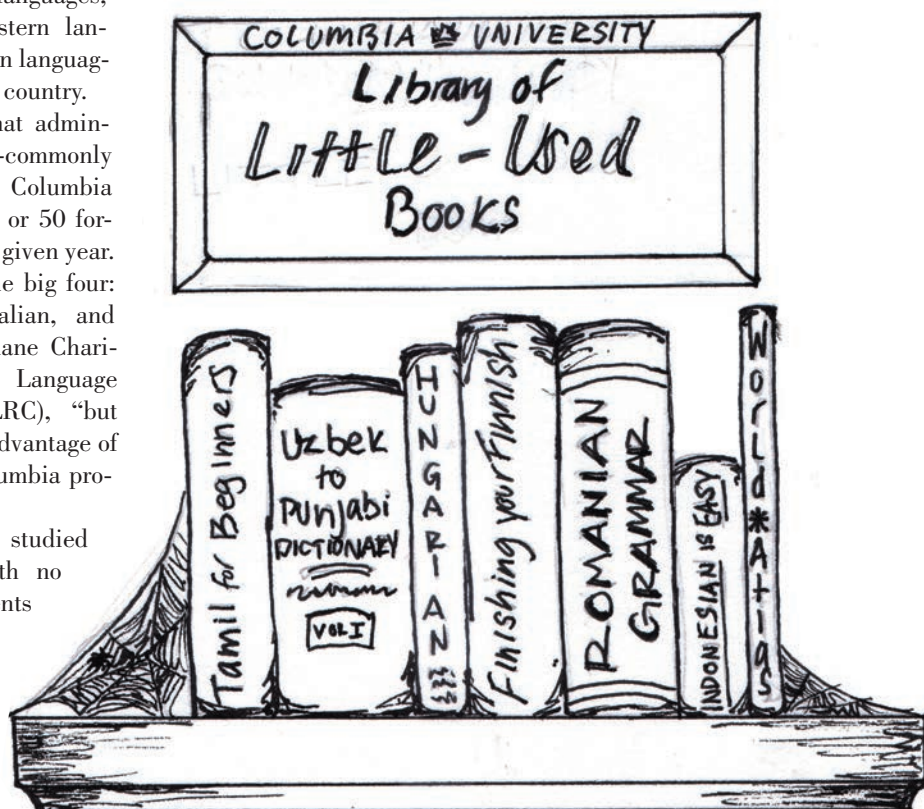 languages,
stern lan-
n languag-
country.
at admin-
-commonly
Columbia
or 50 for-
given year.
e big four:
alian, and
ane Chari-
Language
LRC), “but
dvantage of
umbia pro-
studied
th no
nts
COLUMBIA UNIVERSITY
Library of
Little-Used
Books
Tamil for Beginners
Uzbek
to
Punjabi
DICTIONARY
VOL I
HUNGARIAN
Finishing your Finnish
ROMANIAN
GRAMMAR
INDONESIAN IS EASY
World*Atlas